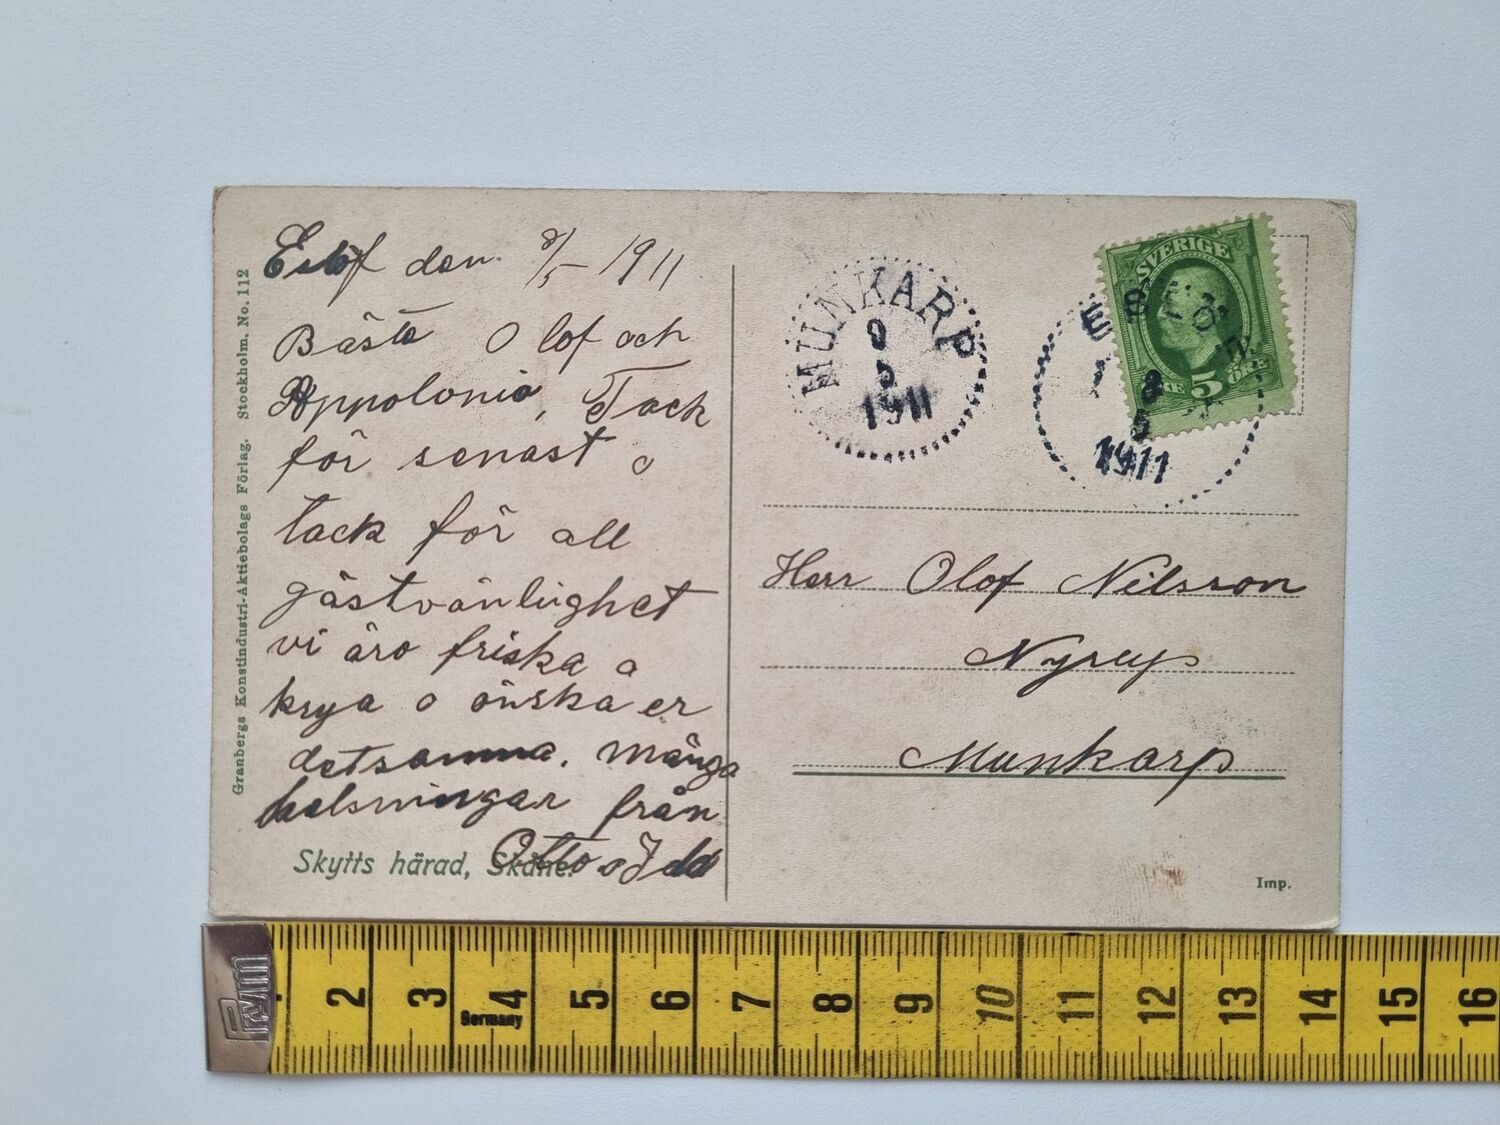 Granbergs Konstindustri-Aktiebolags Förlag. Stockholm. No. 112
Eslöf den 8/5 1911
Bästa Olof och
Appolonia, Tack
för senast o
tack för all
gästvänlighet
vi äro friska o
krya o önska er
detsamma. Många
helsningar från
Otto o Ida
Skytts härad, Skåne.
MUNKARP
9
5
1911
ESLÖF
1
8
5
1911
SVERIGE
5
ÖRE
Herr Olof Nilsson
Nyrup
Munkarp
Imp.
Prym
2 3 4 5 6 7 8 9 10 11 12 13 14 15 16
Germany